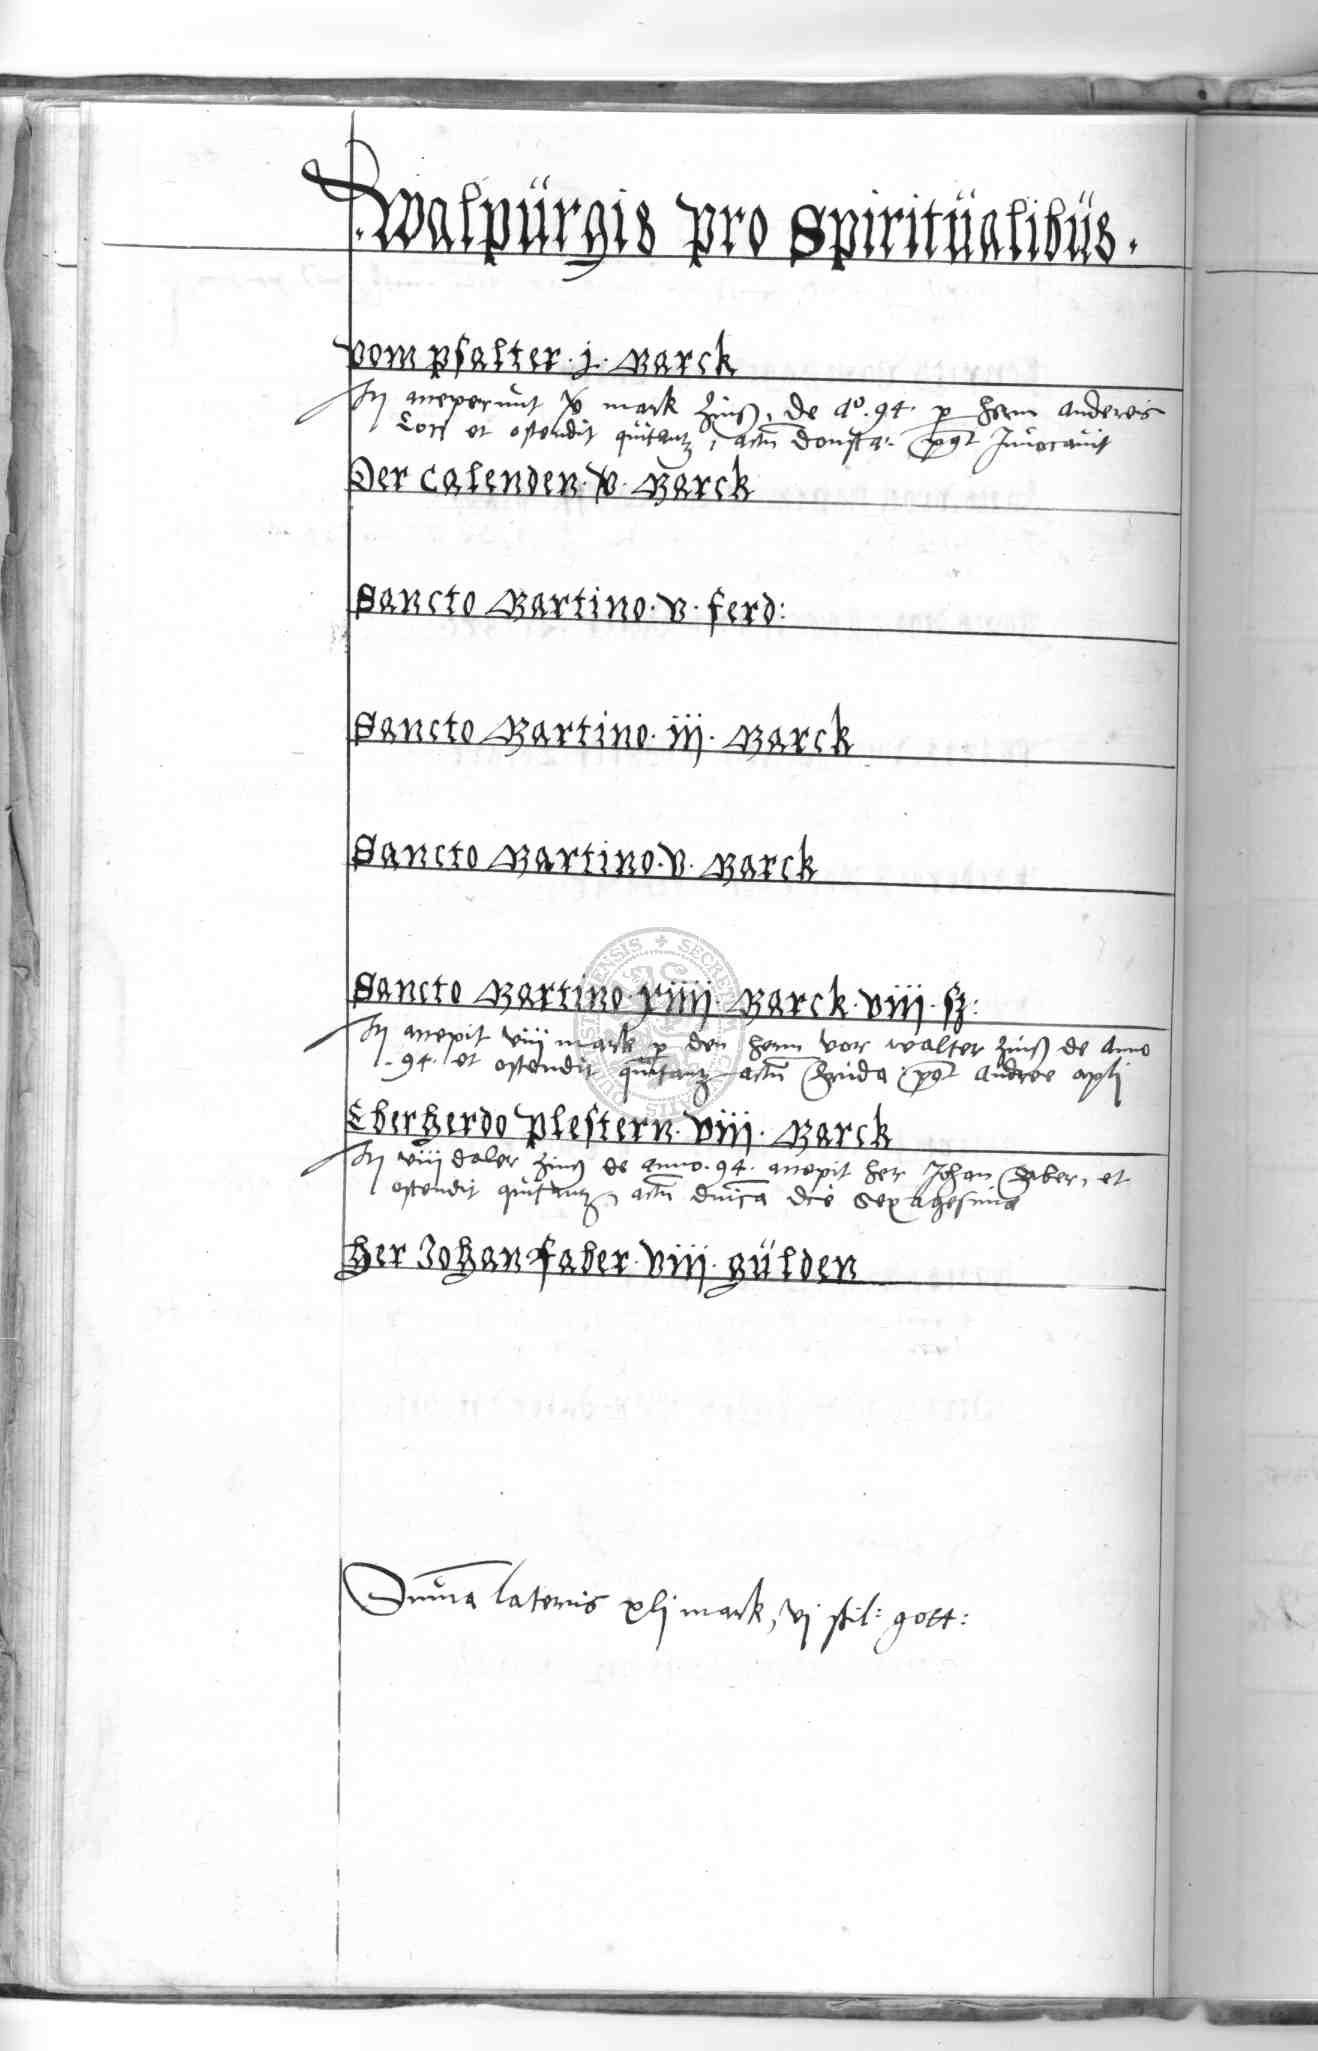 .Walpürgis pro Spiritüalibüs.
vom psalter. j. Marck
acceperunt v mark Zinß, de Aº. 94. p hern Andereis
et ostendit quitantz, actũ Donsta: pꝰt Inuocauit
Der Calenden. v. Marck
Sancto Martino. v. ferd:
Sancto Martino. iij. Marck
Sancto Martino. v. Marck
Sancto Martino xiiij. Marck. viij. sz:
accepit viij mark p den hern vor walter Zinß de Anno
.94. et ostendit quitantz actũ pꝰt Andree apli
Eberherdo Plestern. viij. Marck
viij daler Zinß de anno .94. accepit her Johan Faber, et
ostendit quitantz, actũ dnica die Sexagesima
Her Johan Faber. viij. gülden
Suma lateris xlj mark, vj skil: gott:
SECRETUM